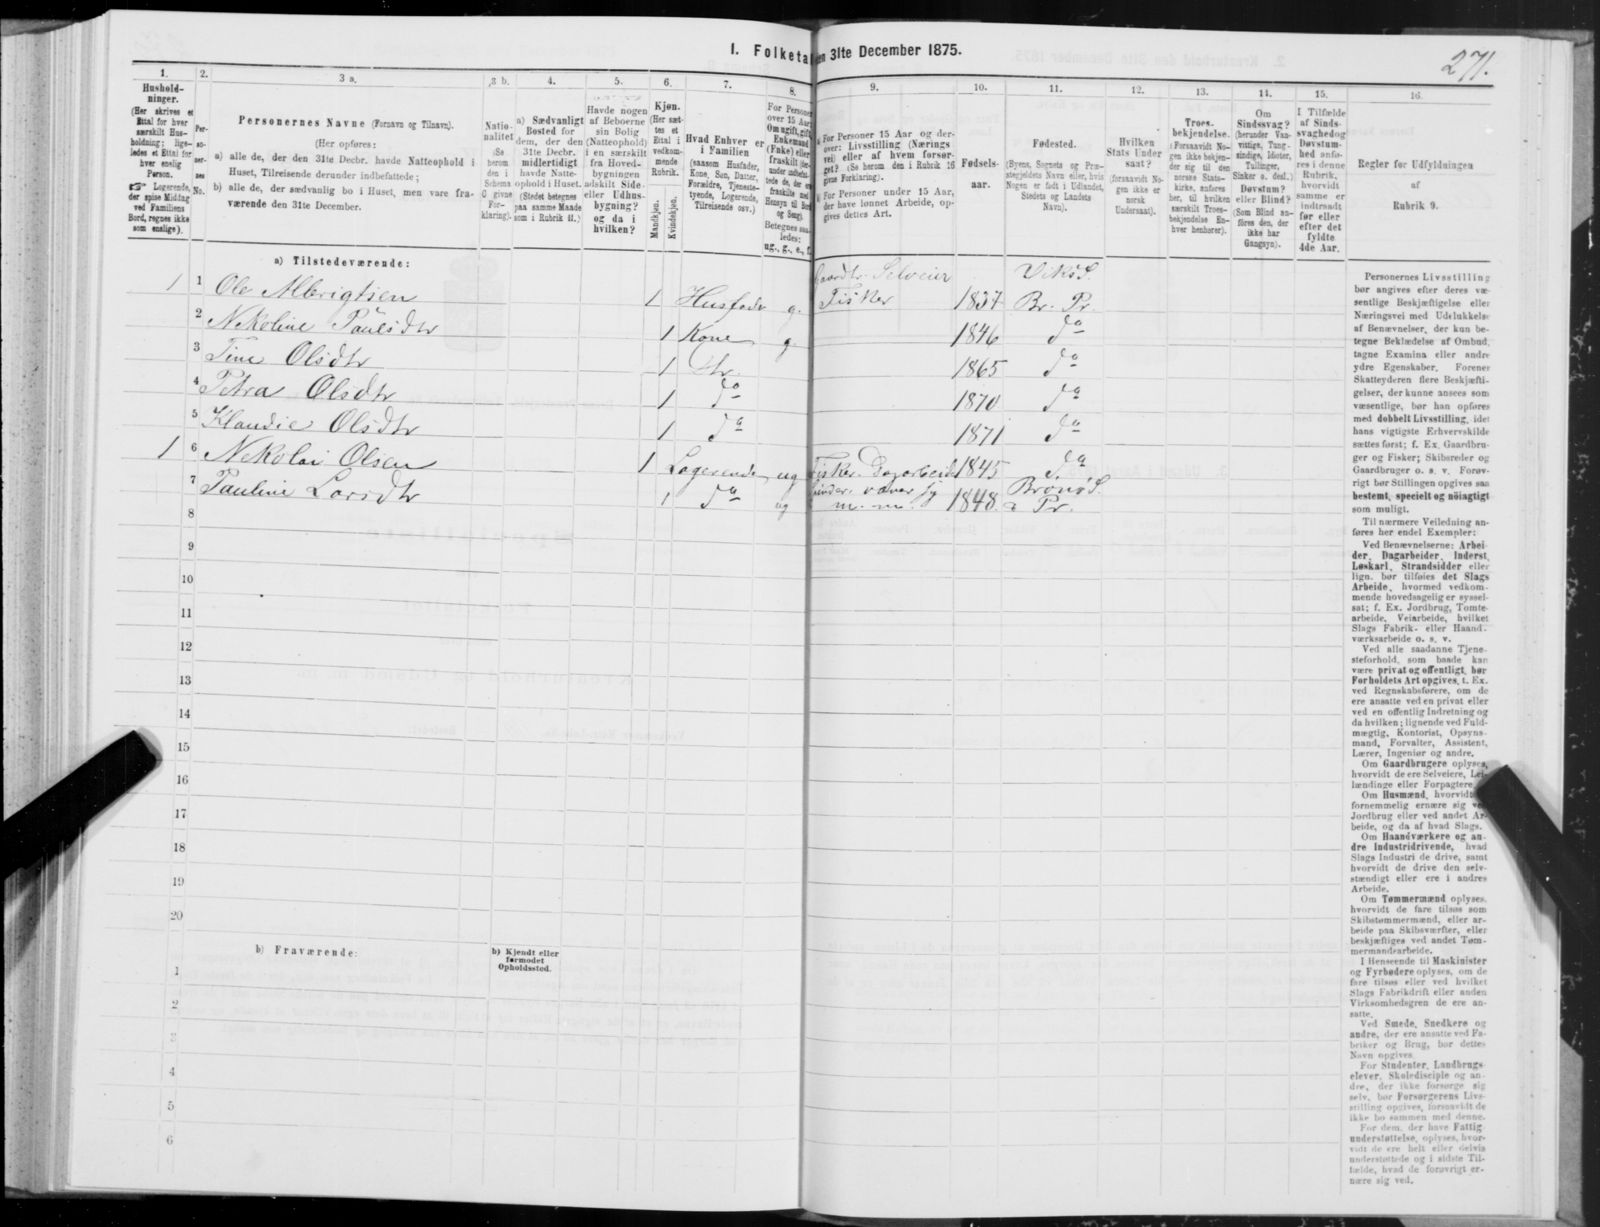 I. Folketal den 31te December 1875.
271.
1.
Hushold-
ninger.
(Her skrives et
Ettal for hver
særskilt Hus-
holdning; lige-
ledes et Ettal for
hver enslig
Person.
Logerende,
der spise Middag
ved Familiens
Bord, regnes ikke
som enslige).
2.
Per-
so-
ner-
nes
No.
3 a.
Personernes Navne (Fornavn og Tilnavn).
(Her opføres:
a) alle de, der den 31te Decbr. havde Natteophold i
Huset, Tilreisende derunder indbefattede;
b) alle de, der sædvanlig bo i Huset, men vare fra-
værende den 31te December.
3 b.
Natio-
nalitet
(Se
herom
den i
Schema
C givne
For-
klaring).
4.
a) Sædvanligt
Bosted for
dem, der den
31te Decbr.
midlertidigt
havde Natte-
ophold i Huset.
(Stedet betegnes
paa samme Maade
som i Rubrik 11.)
5.
Havde nogen
af Beboerne
sin Bolig
(Natteophold)
i en særskilt
fra Hoved-
bygningen
adskilt Side-
eller Udhus-
bygning?
og da i
hvilken?
6.
Kjøn.
(Her sæt-
tes et
Ettal i
vedkom-
mende
Rubrik.
Mandkjøn.
Kvindekjøn.
7.
Hvad Enhver er
i Familien
(saasom Husfader,
Kone, Søn, Datter,
Forældre, Tjeneste-
tyende, Logerende,
Tilreisende osv.)
8.
For Personer
over 15 Aar
Om ugift, gift,
Enkemand
(Enke) eller
fraskilt
Betegnes saa-
ledes:
ug., g., e., f.
9.
a) For Personer 15 Aar og der-
over: Livsstilling (Nærings-
vei) eller af hvem forsør-
get? (Se herom den i Rubrik 16
givne Forklaring).
b) For Personer under 15 Aar,
der have lønnet Arbeide, op-
gives dettes Art.
10.
Fødsels-
aar.
11.
Fødested.
(Byens, Sognets og Præ-
stegjeldets Navn eller, hvis
Nogen er født i Udlandet,
Stedets og Landets
Navn).
12.
Hvilken
Stats Under
saat?
(forsaavidt No-
gen ikke er
norsk
Undersaat).
13.
Troes-
bekjendelse.
(Forsaavidt No-
gen ikke bekjen-
der sig til den
norske Stats-
kirke, anføres
her, til hvilken
særskilt Troes-
bekjendelse En-
hver henhører).
14.
Om
Sindssvag?
(herunder Van-
vittige, Tung-
sindige, Idioter,
Tullinger,
Sinker o. desl.)
Døvstum?
eller Blind?
(Som Blind an-
føres den, der
ikke har
Gangsyn).
15.
I Tilfælde
af Sinds-
svaghed og
Døvstum-
hed anfø-
res i denne
Rubrik,
hvorvidt
samme er
indtraadt
før eller
efter det
fyldte
4de Aar.
16.
Regler for Udfyldningen
af
Rubrik 9.
a) Tilstedeværende:
1 1 Ole Albrigtsen 1 Husfader g. Gaardbr. Selveier Fisker 1837 Vik S. Br. Pr.
2 Nekoline Paulsdtr 1 Kone g 1846 do
3 Tine Olsdtr 1 dtr. 1865 do
4 Petra Olsdtr 1 do 1870 do
5 Klaudie Olsdtr 1 do 1871 do
1 6 Nekolai Olsen 1 Logerende ug Fisker. Dagarbeide 1845 do
7 Pauline Larsdtr 1 do ug væver sy m. m. 1848 Brønø S. & Pr.
8
9
10
11
12
13
14
15
16
17
18
19
20
b) Fraværende:
b) Kjendt eller
formodet
Opholdssted.
1
2
3
4
5
6
Personernes Livsstilling
bør angives efter deres væ-
sentlige Beskjæftigelse eller
Næringsvei med Udelukkelse
af Benævnelser, der kun be-
tegne Beklædelse af Ombud,
tagne Examina eller andre
ydre Egenskaber. Forener
Skatteyderen flere Beskjæfti-
gelser, der kunne ansees som
væsentlige, bør han opføres
med dobbelt Livsstilling, idet
hans vigtigste Erhvervskilde
sættes først; f. Ex. Gaardbru-
ger og Fisker; Skibsreder og
Gaardbruger o. s. v. Forøv-
rigt bør Stillingen opgives saa
bestemt, specielt og nøiagtigt
som muligt.
Til nærmere Veiledning an-
føres her endel Exempler:
Ved Benævnelserne: Arbei-
der, Dagarbeider, Inderst,
Løskarl, Strandsidder eller
lign. bør tilføies det Slags
Arbeide, hvormed vedkom-
mende hovedsagelig er syssel-
sat; f. Ex. Jordbrug, Tomte-
arbeide, Veiarbeide, hvilket
Slags Fabrik- eller Haand-
værksarbeide o. s. v.
Ved alle saadanne Tjene-
steforhold, som baade kan
være privat og offentligt, bør
Forholdets Art opgives, t. Ex.
ved Regnskabsførere, om de
ere ansatte ved en privat eller
ved en offentlig Indretning og
da hvilken; lignende ved Fuld-
mægtig, Kontorist, Opsyns-
mand, Forvalter, Assistent,
Lærer, Ingeniør og andre.
Om Gaardbrugere oplyses,
hvorvidt de ere Selveiere, Lei-
lændinge eller Forpagtere.
Om Husmænd, hvorvidt
fornemmelig ernære sig ved
Jordbrug eller ved andet Ar-
beide, og da af hvad Slags.
Om Haandværkere og an-
dre Industridrivende, hvad
Slags Industri de drive, samt
hvorvidt de drive den selv-
stændigt eller ere i andres
Arbeide.
Om Tømmermænd oplyses,
hvorvidt de fare tilsøs som
Skibstømmermænd, eller ar-
beide paa Skibsværfter, eller
beskjæftiges ved andet Tøm-
mermandsarbeide.
I Henseende til Maskinister
og Fyrbødere oplyses, om de
fare tilsøs eller ved hvilket
Slags Fabrikdrift eller anden
Virksomhedsgren de ere an-
satte.
Ved Smede, Snedkere og
andre, der ere ansatte ved Fa-
briker og Brug, bør dettes
Navn opgives.
For Studenter, Landbrugs-
elever, Skoledisciple og an-
dre, der ikke forsørge sig
selv, bør Forsørgerens Livs-
stilling opgives, forsaavidt de
ikke bo sammen med denne.
For dem, der have Fattig-
understøttelse, oplyses, hvor-
vidt de ere helt eller delvis
understøttede og i sidste Til-
fælde, hvad de forøvrigt er-
nære sig ved.